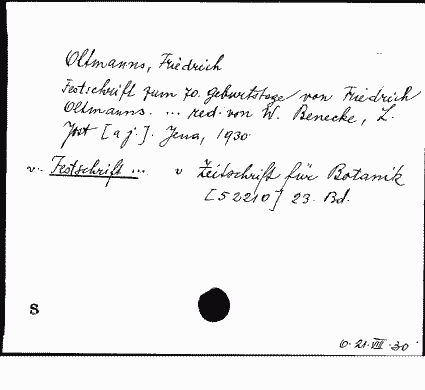 Oltmanns, Friedrich
Festschrift zum 70. geburtstage von Friedrich
Oltmanns. ... red. von W. Benecke, L.
Jost [a j.]. Jena, 1930
v. Festschrift ... v Zeitschrift für Botanik
[52210] 23. Bd.
S
6. 21. VIII. 30